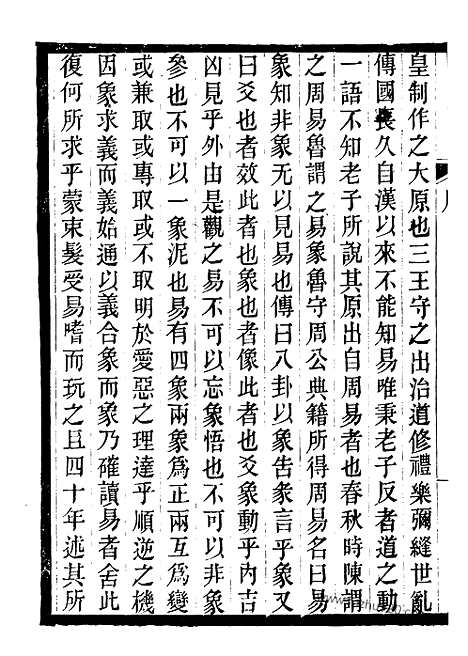 皇制作之大原也三王守之出治道修禮樂彌縫世亂
傳國喪久自漢以來不能知易唯秉老子反者道之動
一語不知老子所說其原出自周易者也春秋時陳謂
之周易魯謂之易象魯守周公典籍所得周易名曰易
象知非象无以見易也傳曰八卦以象告彖言乎象又
曰爻也者效此者也象也者像此者也爻象動乎內吉
凶見乎外由是觀之易不可以忘象悟也不可以非象
參也不可以一象泥也易有四象兩象爲正兩互爲變
或兼取或專取或不取明於愛惡之理達乎順逆之機
因象求義而義始通以義合象而象乃確讀易者舍此
復何所求乎蒙束髮受易嗜而玩之且四十年述其所